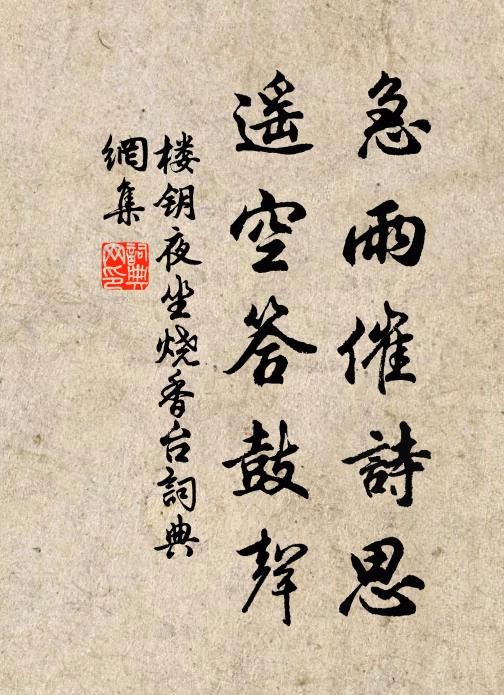 急雨催詩思
遥空答鼓聲
楼钥夜坐烧香台詞典
網集
詞典
网印